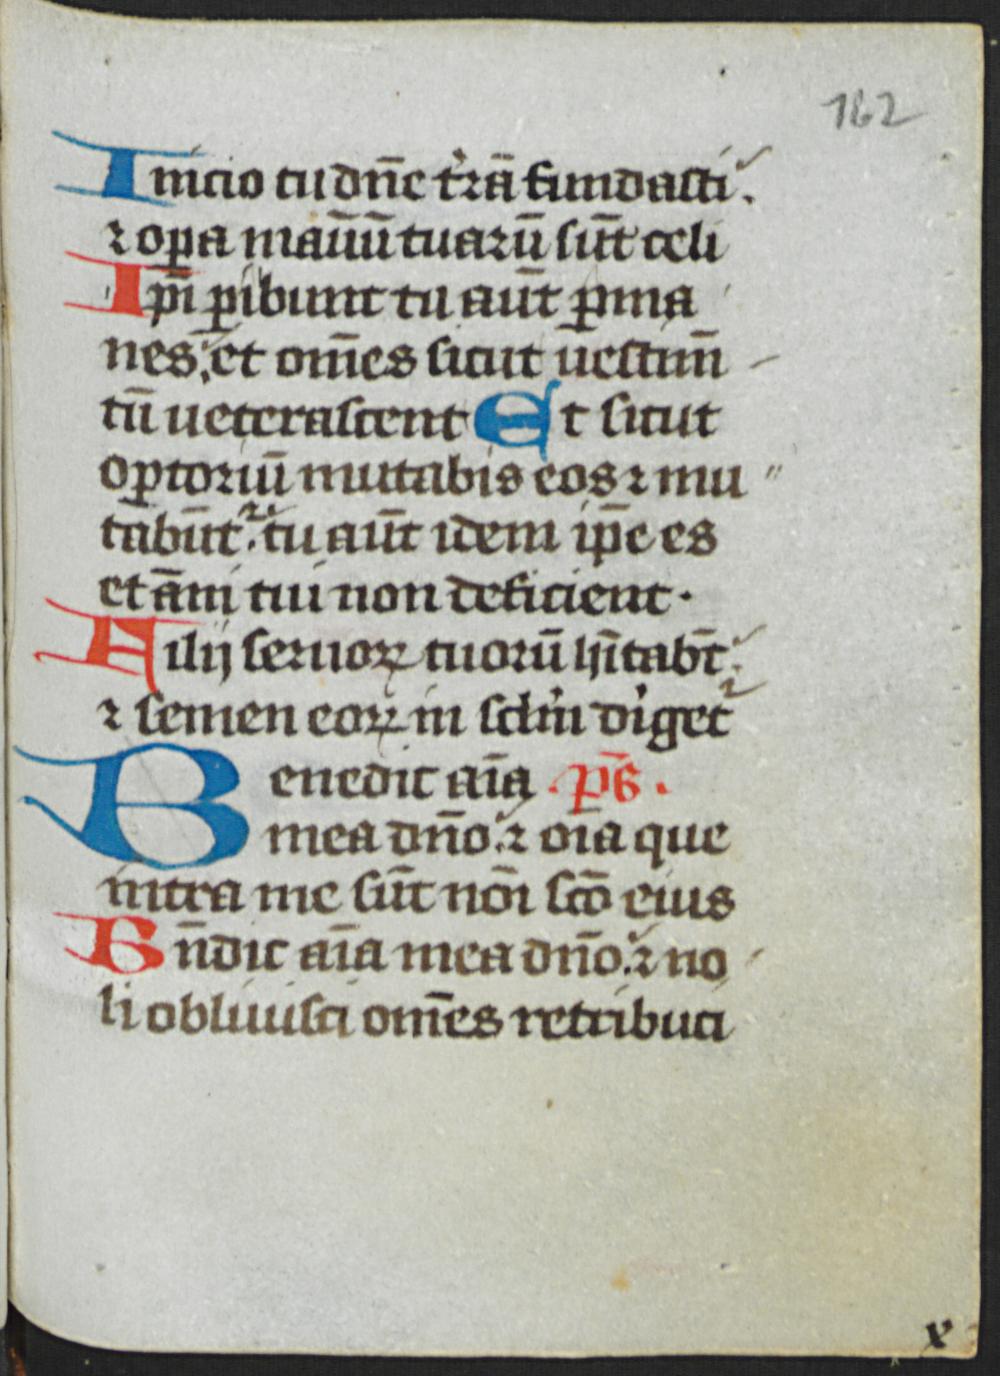 162
Inicio tu dn̄e t̓rā fundasti.
⁊ oꝑa māūū tuarū sūt celi
Ip̄i ꝑibunt tu aūt ꝑma
nes. et om̄es sicut uestim̄
tū ueterascent Et sicut
oꝑtoriū mutabis eos ⁊ mu
tabūt᷑. tu aūt idem ip̄e es
et ān̄i tui non deficient.
Filij seruoꝝ tuorū h̄itabt̄.
⁊ semen eoꝝ in sclm̄ dirget᷑
Benedic aīa .p̄s.
mea dn̄o. ⁊ oīa que
intra me sūt nōi scō eius
Bn̄dic aīa mea dn̄o. ⁊ no
li obliuisci om̄es retribuci
x